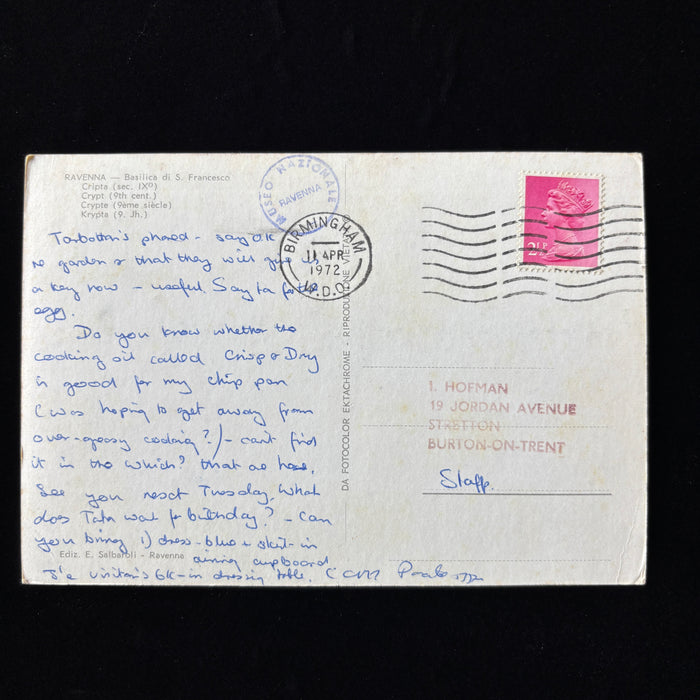 RAVENNA — Basilica di S. Francesco
Cripta (sec. IXº)
Crypt (9th cent.)
Crypte (9ème siècle)
Krypta (9. Jh.)
MUSEO NAZIONALE
RAVENNA
BIRMINGHAM
11 APR
1972
W.D.O.
2½P
phoned - say OK
re garden & that they will give us
a key now - useful. Say ta for the
egg.
Do you know whether the
cooking oil called Crisp & Dry
is good for my chip pan
(was hoping to get away from
over-greasy cooking?) - can't find
it in the Which? that we have.
See you next Tuesday. What
does want for birthday? - Can
you bring 1) dress - blue & skirt - in
airing cupboard
visitor's bk - in dressing table.
DA FOTOCOLOR EKTACHROME - RIPRODUZIONE VIETATA
1. HOFMAN
19 JORDAN AVENUE
STRETTON
BURTON-ON-TRENT
Staffs.
Ediz. E. Salbaroli - Ravenna